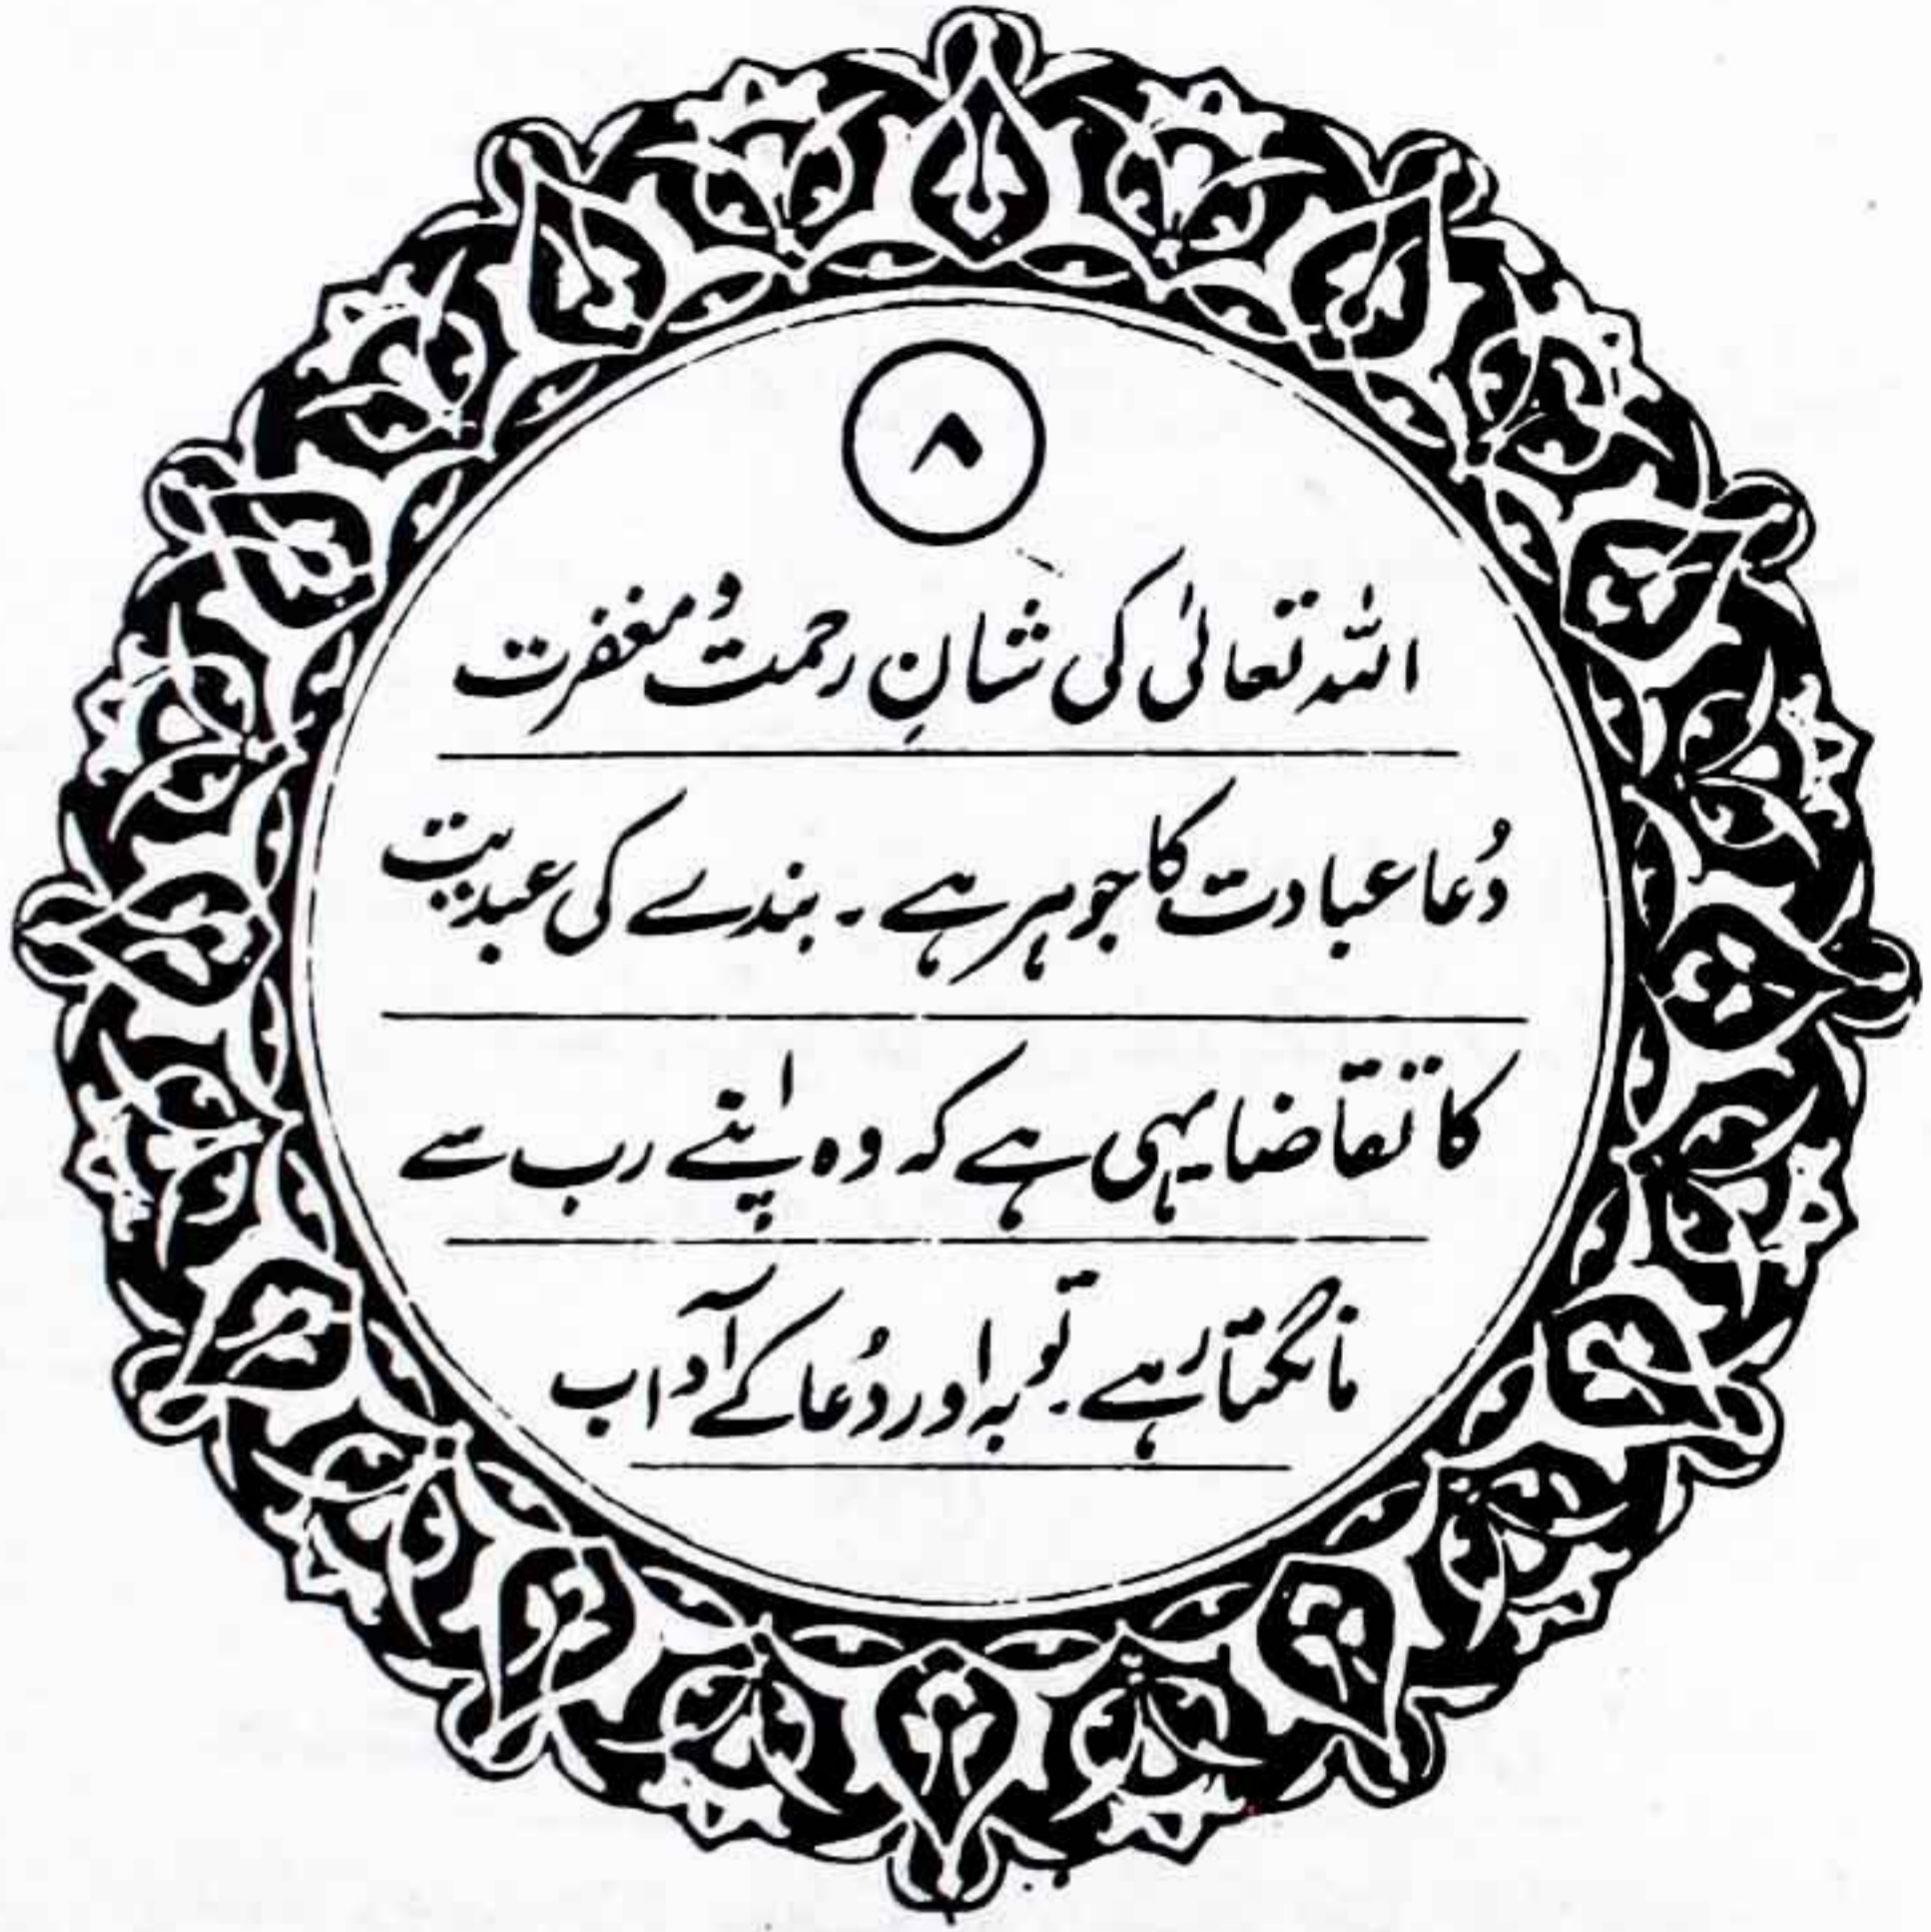 ۸
اللہ تعالیٰ کی شانِ رحمت و مغفرت
دُعا عبادت کا جوہر ہے۔ بندے کی عبدیت
کا تقاضا یہی ہے کہ وہ اپنے رب سے
مانگتا رہے۔ توبہ اور دُعا کے آداب